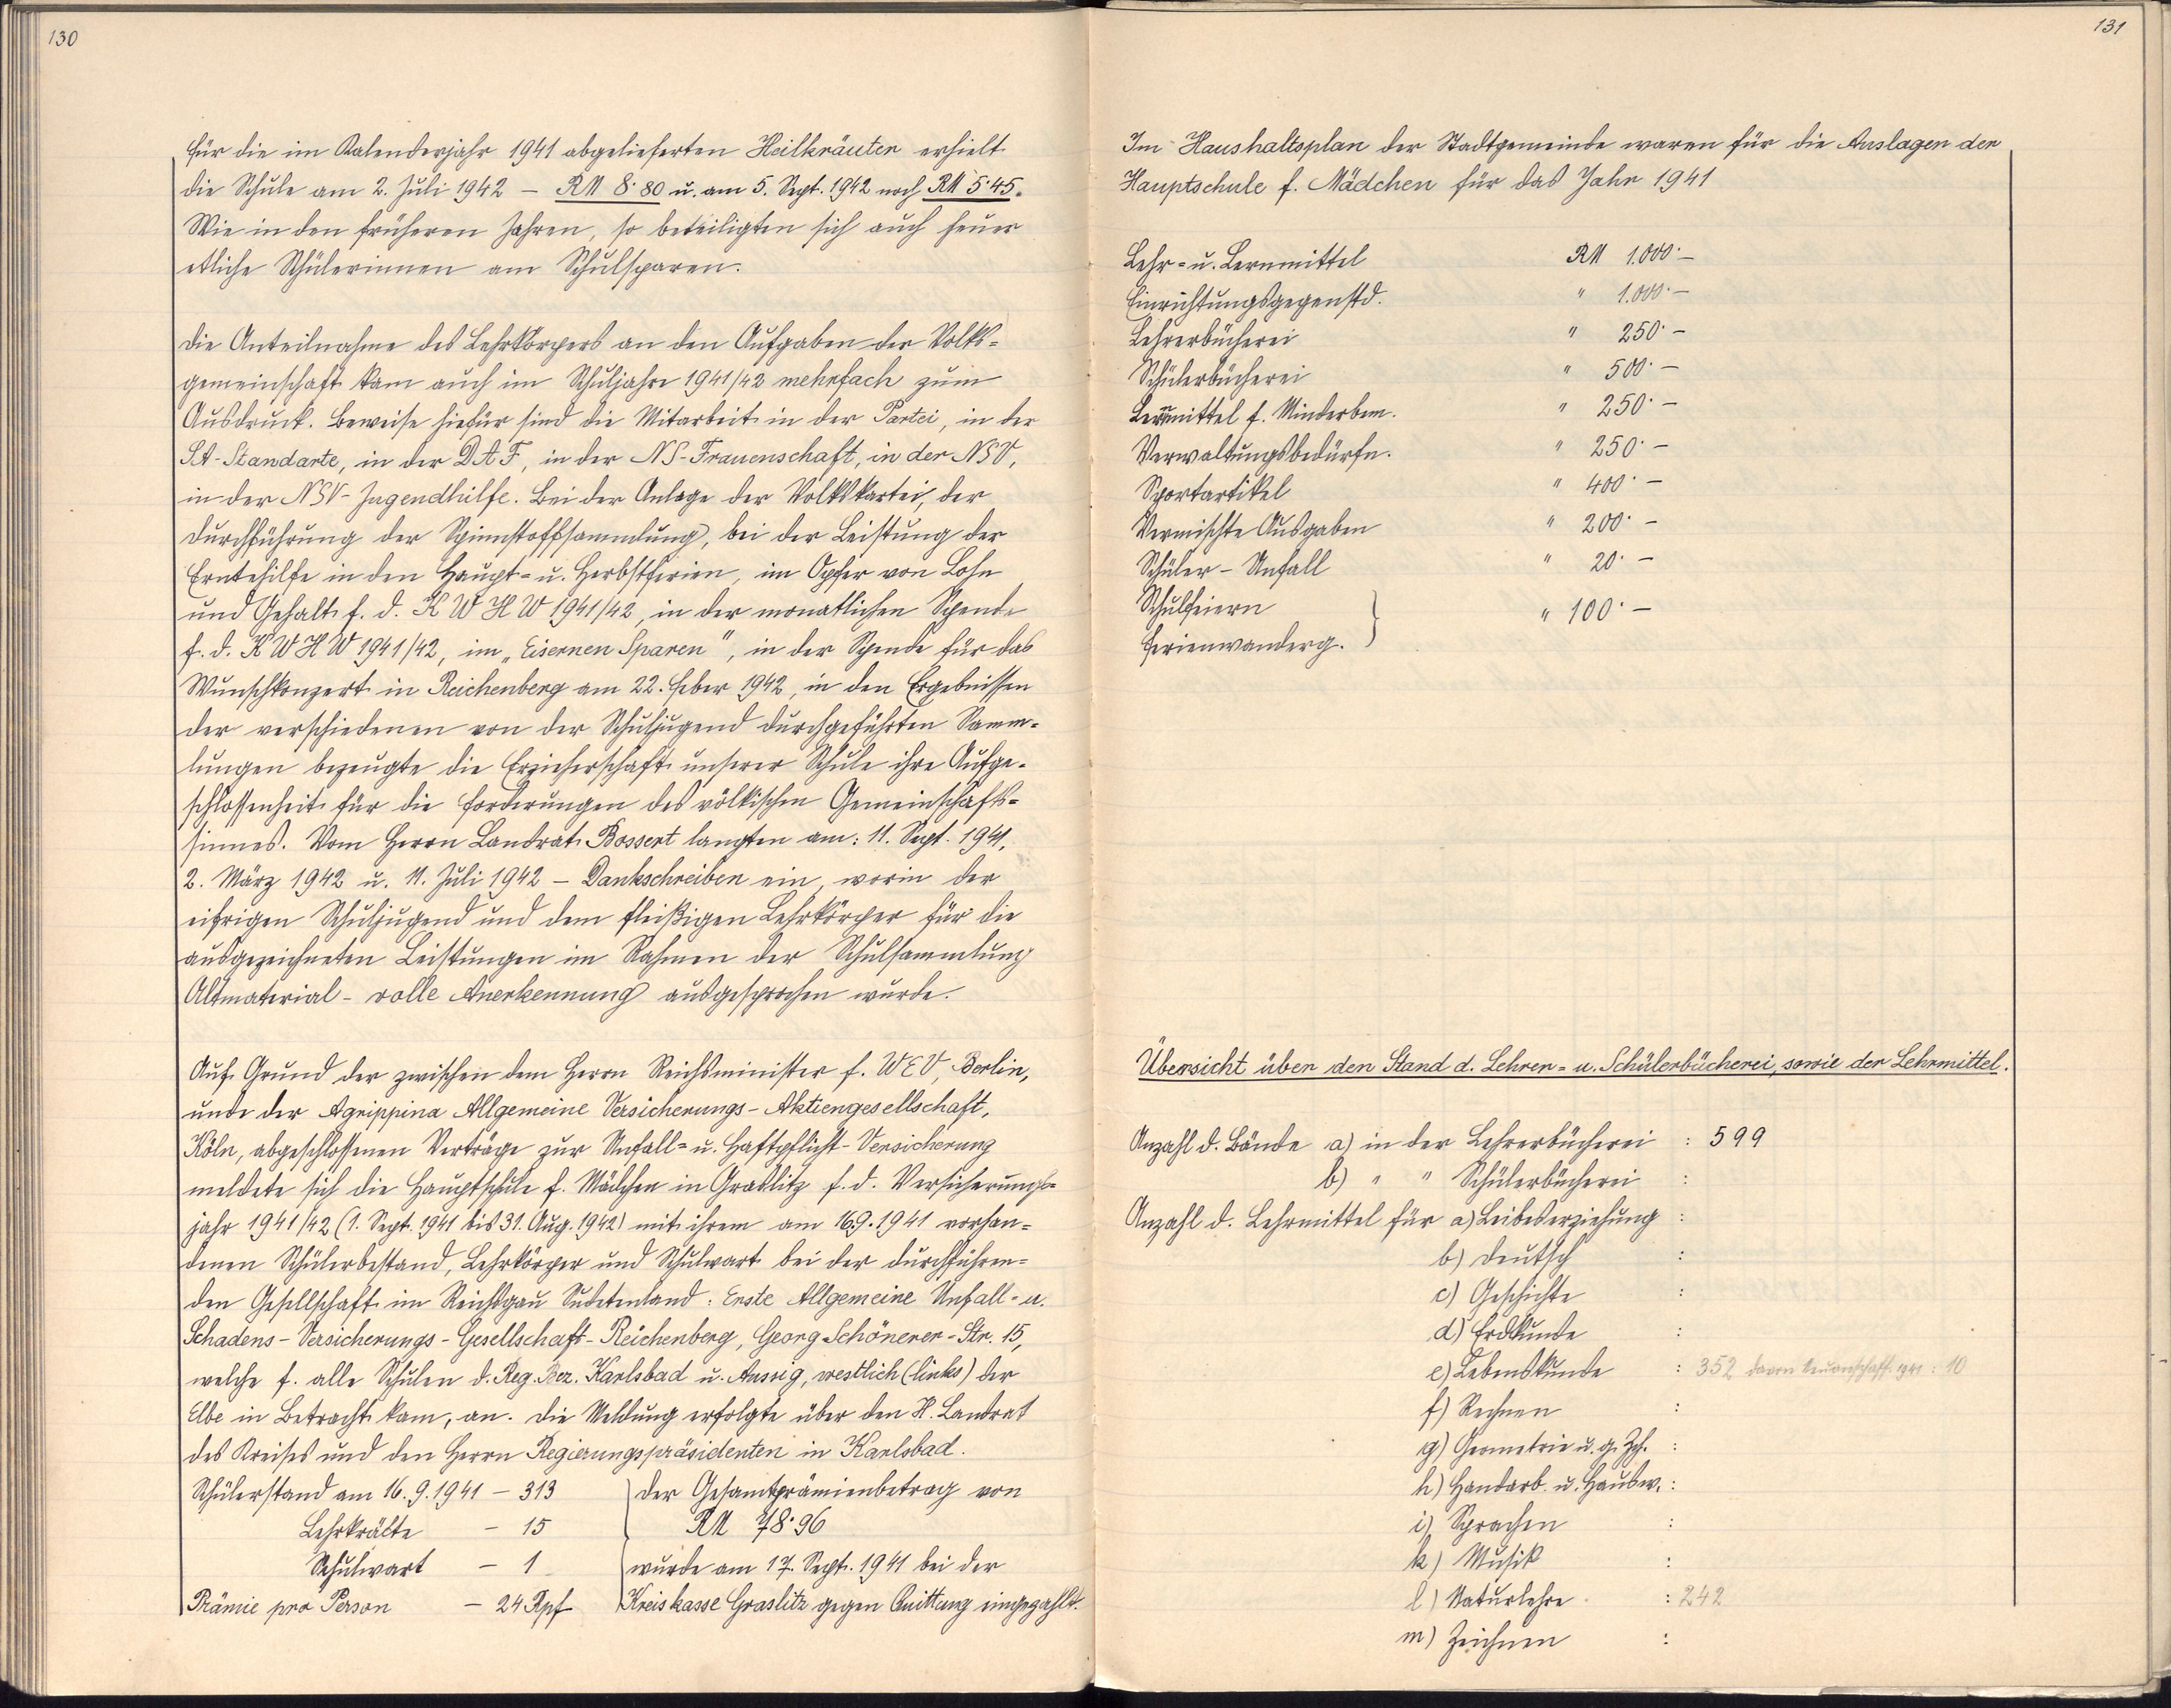 130
Für die im Kalenderjahr 1941 abgelieferten Heilkräuter erhielt
die Schule am 2. Juli 1942 – RM 8·80 u. am 5. Sept. 1942 noch RM 5·45.
Wie in den früheren Jahren, so beteiligten sich auch heuer
etliche Schülerinnen am Schulsparen.
Die Anteilnahme des Lehrkörpers an den Aufgaben der Volks-
gemeinschaft kam auch im Schuljahre 1941/42 mehrfach zum
Ausdruck. Beweise hiefür sind die Mitarbeit in der Partei, in der
SA-Standarte, in der DAF, in der NS-Frauenschaft, in der NSV,
in der NSV-Jugendhilfe. Bei der Anlage der Volkskartei, der
Durchführung der Spinnstoffsammlung, bei der Leistung der
Erntehilfe in den Haupt- u. Herbstferien, im Opfer von Lohn
und Gehalt f. d. KWHW 1941/42, in der monatlichen Spende
f. d. KWHW 1941/42, im „Eisernen Sparen", in der Spende für das
Wunschkonzert in Reichenberg am 22. Feber 1942, in den Ergebnissen
der verschiedenen von der Schuljugend durchgeführten Samm-
lungen bezeugte die Erzieherschaft unserer Schule ihre Aufge-
schlossenheit für die Forderungen des völkischen Gemeinschafts-
sinnes. Vom Herrn Landrat Bossert langten am: 11. Sept. 1941,
2. März 1942 u. 11. Juli 1942 – Dankschreiben ein, worin der
eifrigen Schuljugend und dem fleißigen Lehrkörper für die
ausgezeichneten Leistungen im Rahmen der Schulsammlung
Altmaterial – volle Anerkennung ausgesprochen wurde.
Auf Grund der zwischen dem Herrn Reichsminister f. WEV, Berlin,
und der Agrippina Allgemeine Versicherungs-Aktiengesellschaft,
Köln, abgeschlossenen Verträge zur Unfall- u. Haftpflicht-Versicherung
meldete sich die Hauptschule f. Mädchen in Graslitz f. d. Versicherungs-
jahr 1941/42 (1. Sept. 1941 bis 31. Aug. 1942) mit ihrem am 16.9.1941 vorhan-
denen Schülerbestand, Lehrkörper und Schulwart bei der durchführen-
den Gesellschaft im Reichsgau Sudetenland: Erste Allgemeine Unfall- u.
Schadens-Versicherungs-Gesellschaft-Reichenberg, Georg Schönerer-Str. 15,
welche f. alle Schulen d. Reg. Bez. Karlsbad u. Aussig, westlich (links) der
Elbe in Betracht kam, an. Die Meldung erfolgte über den H. Landrat
des Kreises und den Herrn Regierungspräsidenten in Karlsbad.
Schülerstand am 16.9.1941 – 313 } Der Gesamtprämienbetrag von
Lehrkräfte – 15 RM 78·96
Schulwart – 1 wurde am 17. Sept. 1941 bei der
Prämie pro Person – 24 Rpf Kreiskasse Graslitz gegen Quittung eingezahlt.
131
Im Haushaltsplan der Stadtgemeinde waren für die Auslagen der
Hauptschule f. Mädchen für das Jahr 1941
Lehr- u. Lernmittel RM 1.000·–
Einrichtungsgegenstd. " 1.000·–
Lehrerbücherei " 250·–
Schülerbücherei " 500·–
Lernmittel f. Minderbem. " 250·–
Verwaltungsbedürfn. " 250·–
Sportartikel " 400·–
Vermischte Ausgaben " 200·–
Schüler-Unfall " 20·–
Schulfeiern } " 100·–
Ferienwanderg.
Übersicht über den Stand d. Lehrer- u. Schülerbücherei, sowie der Lehrmittel.
Anzahl d. Bände a) in der Lehrerbücherei : 599
b) " " Schülerbücherei :
Anzahl d. Lehrmittel für a) Leibeserziehung :
b) Deutsch :
c) Geschichte :
d) Erdkunde :
e) Lebenskunde : 352 davon Neuanschaff. 1941 : 10
f) Rechnen :
g) Geometrie u. g. Zch. :
h) Handarb. u. Hausw. :
i) Sprachen :
k) Musik :
l) Naturlehre : 242
m) Zeichnen :